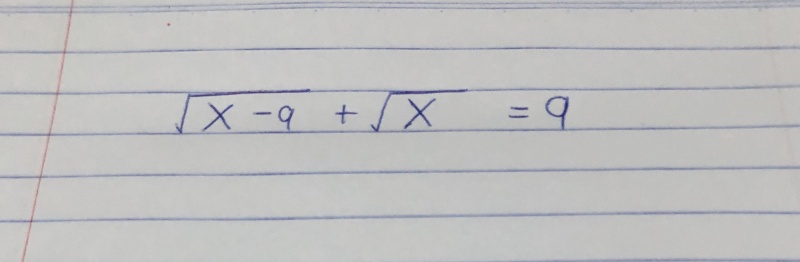 √(x-9) + √x = 9